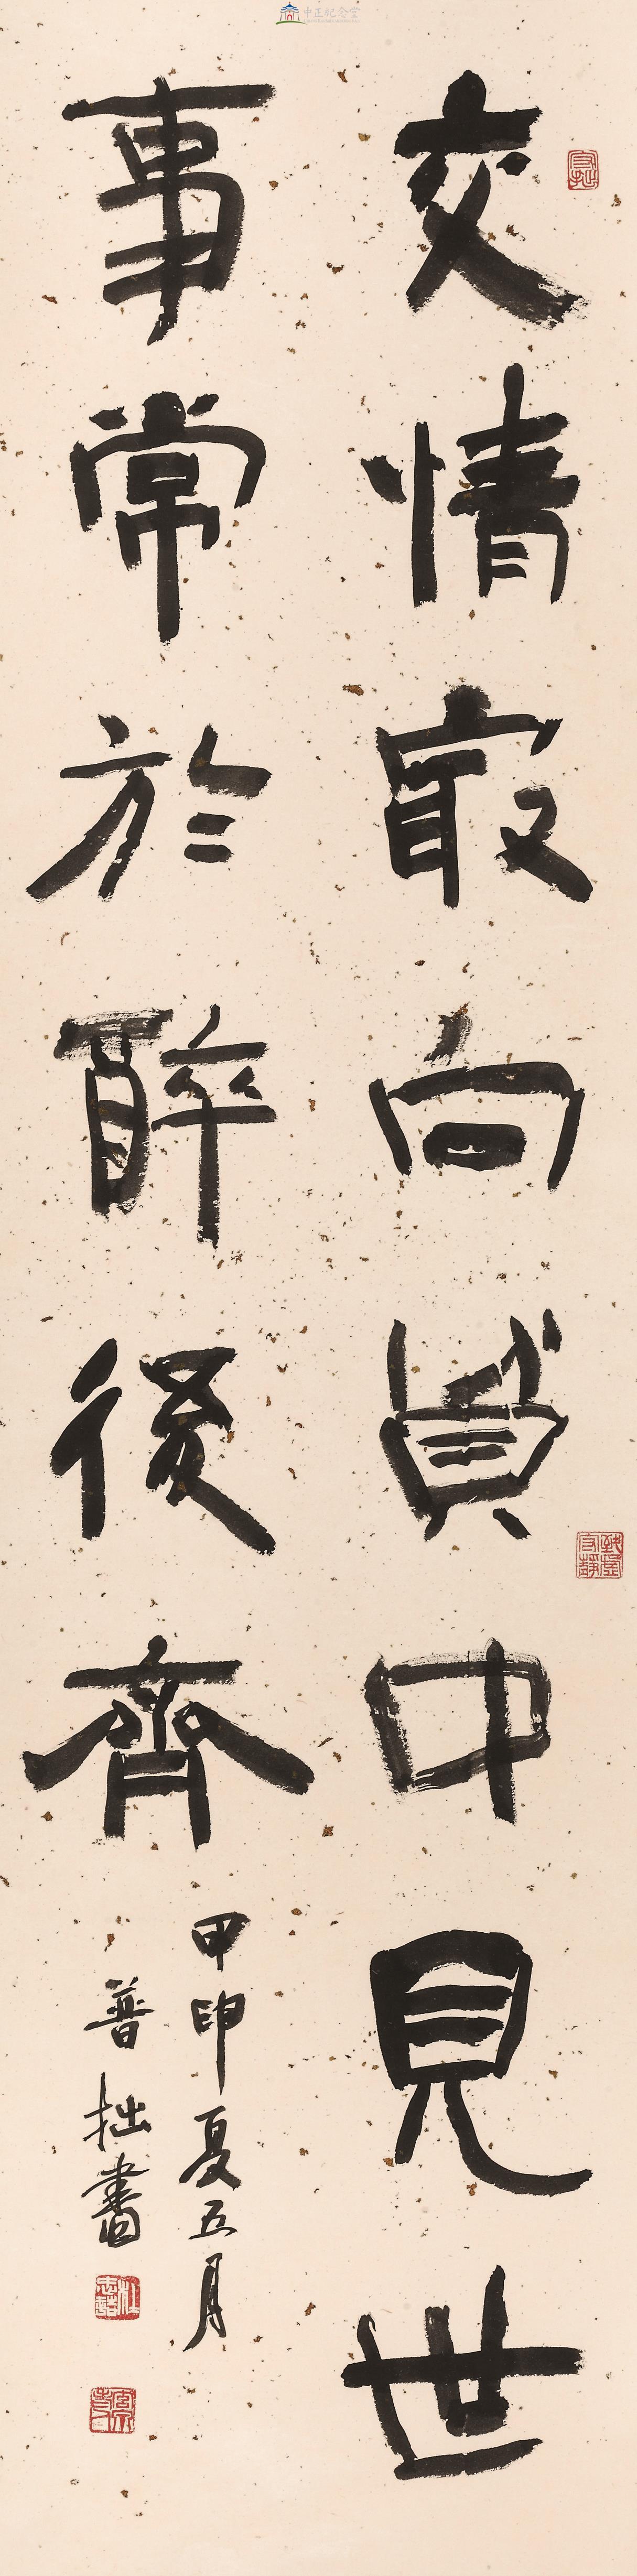 中正紀念堂
交情最向貧中見世
事常於醉後齊
甲申夏五月
普拙書
守拙